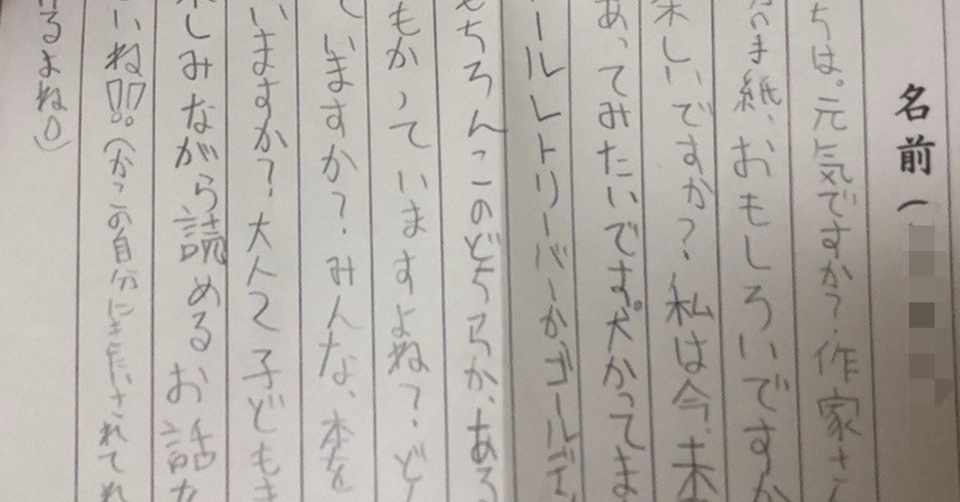 名前（
ちは。元気ですか？作家さ
紙、おもしろいですか
楽しいですか？私は今、本
あってみたいです。犬かってま
ールレトリーバーか、ゴールデ
もちろんこのどちらか、ある
もかっていますよね？ど
いますか？みんな、本を
いますか？大人と子どもき
しみながら読めるお話な
いね!!。（がこの自分に
るよね）